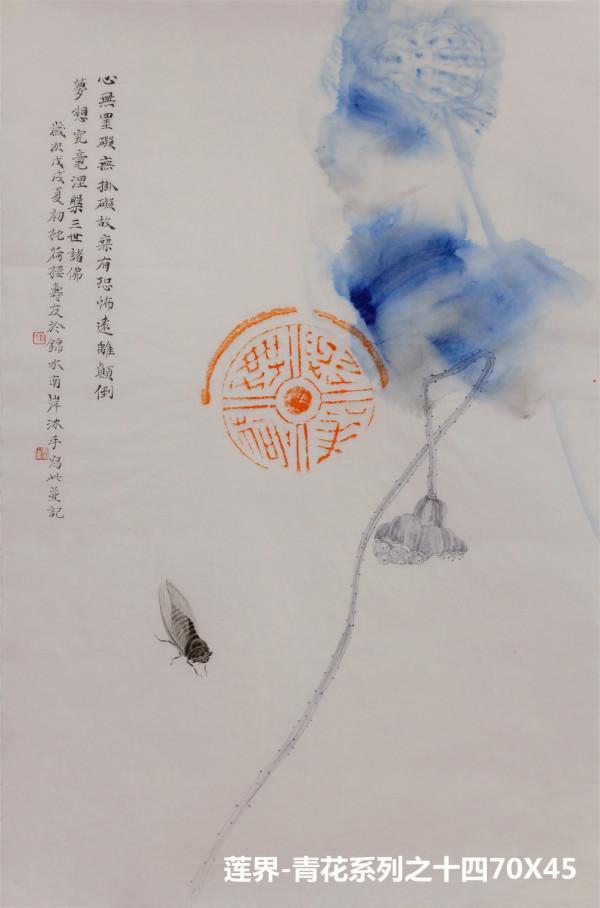 心無罣礙無掛礙故無有恐怖遠離顛倒
夢想究竟涅槃三世諸佛
歲次戊戌夏初枕荷壽友於錦水南岸沐手寫此並記
莲界-青花系列之十四70X45